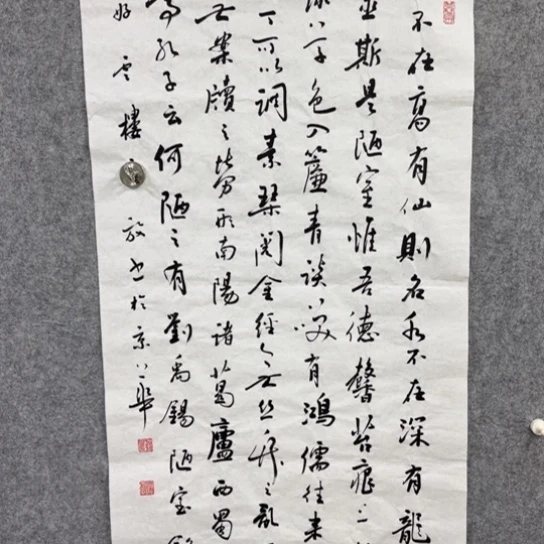 不在高有仙則名水不在深有龍
斯是陋室惟吾德馨苔痕上
草色入簾青談笑有鴻儒往來
丁可以調素琴閱金經無絲竹之亂
無案牘之勞形南陽諸葛廬西蜀
亭孔子云何陋之有劉禹錫陋室銘
樓主放書於京華